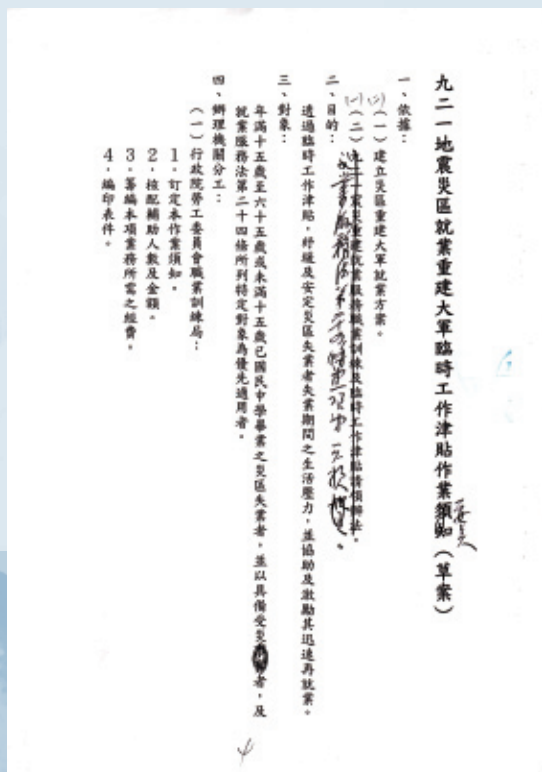 九二一地震災區就業重建大軍臨時工作津貼作業須知（草案）
要點
一、依據：
（二）
（一）建立災區重建大軍就業方案。
（一）
（二）九二一震災重建就業服務職業訓練及臨時工作津貼請領辦法。
二、目的：
透過臨時工作津貼，紓緩及安定災區失業者失業期間之生活壓力，並協助及激勵其迅速再就業。
三、對象：
年滿十五歲至六十五歲或未滿十五歲已國民中學畢業之災區失業者，並以具備受災者，及
就業服務法第二十四條所列特定對象為優先適用者。
四、辦理機關分工：
（一）行政院勞工委員會職業訓練局：
1．訂定本作業須知。
2．核配輔助人數及金額。
3．籌編本項業務所需之經費。
4．編印表件。